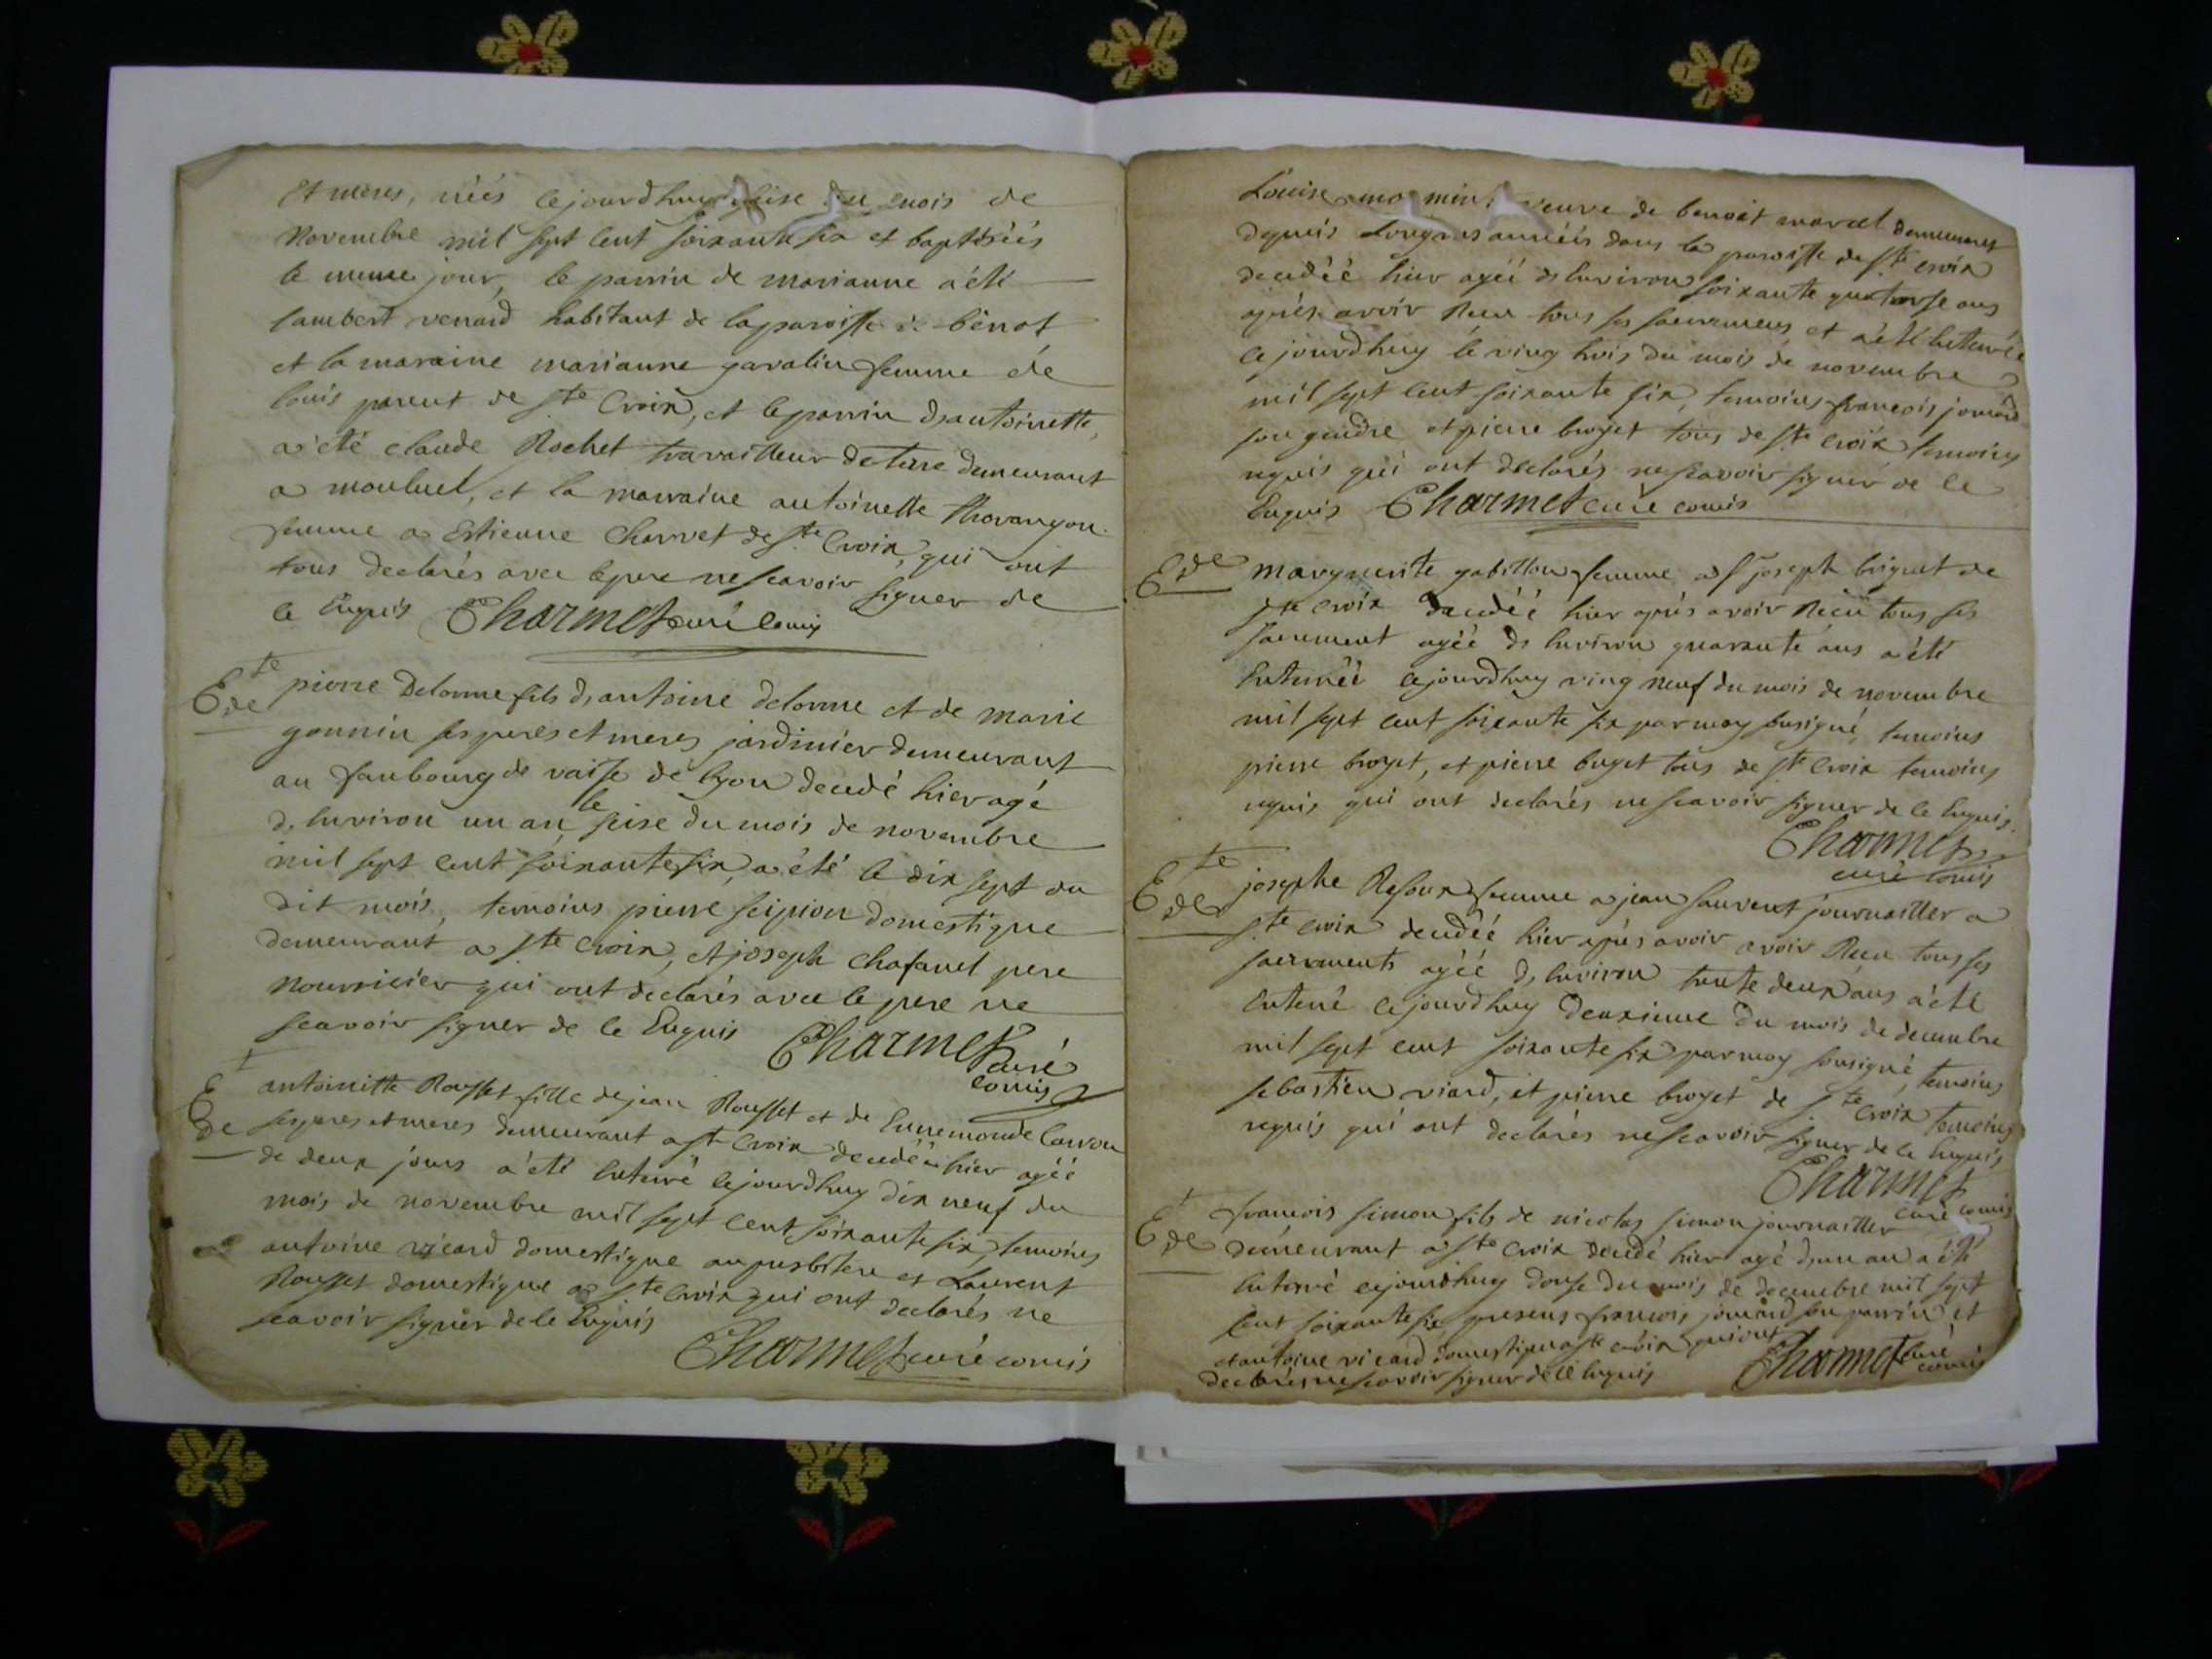 et meres, néés cejourdhuy seise du mois de
novembre mil sept cent soixante six et baptisées
le meme jour, le parrin de marianne a été
lambert renard habitant de la paroisse de bénot
et la maraine marianne gavalin femme de
louis parent de ste Croix, et le parrin d'antoinette,
a été claude Rochet travailleur de terre demeurant
a moluel, et la marraine antoinette
femme a Estienne Charvet de ste Croix, qui ont
tous declarés avec le pere ne scavoir signer de
ce Enquis Charmet curé comis
E te de pierre Delorme fils d'antoine delorme et de marie
gonnin ses peres et meres jardinier demeurant
au faubourg de vaise de lyon decedé hier agé
d'environ un an le seise du mois de novembre
mil sept cent soixante six, a été le dix sept du
dit mois, temoins pierre scipion domestique
demeurant a ste Croix, et joseph chafanel pere
nourricier qui ont declarés avec le pere ne
scavoir signer de ce Enquis Charmet curé
comis
E t de antoinette Rousset fille de jean Rousset et de Ennemonde Carron
ses peres et meres demeurant a ste Croix decedée hier agéé
de deux jours a été enterré cejourdhuy dix neuf du
mois de novembre mil sept cent soixante six, temoins
antoine vicard domestique au presbitere et Laurent
Rousset domestique a ste Croix qui ont declarés ne
scavoir signer de ce Enquis
Charmet curé comis
Louise veuve de benoit marcel demeurant
depuis longues annéés dans la paroisse de ste croix
decedéé hier agéé d'environ soixante quatorse ans
aprés avoir Receu tous ses sacremens et a été enterréé
cejourdhuy le ving trois du mois de novembre
mil sept cent soixante six, temoins françois jomard
son gendre et pierre broyet tous de ste croix temoins
requis qui ont declarés ne scavoir signer de ce
Enquis Charmet curé comis
E de marguerite gabillon femme a joseph briguet de
ste croix decedéé hier aprés avoir Recu tous ses
sacrement agéé d'environ quarante ans a été
Enterréé cejourdhuy ving neuf du mois de novembre
mil sept cent soixante six par moy sousigné, temoins
pierre broyet, et pierre buget tous de ste Croix temoins
requis qui ont declarés ne scavoir signer de ce Enquis.
Charmet
curé comis
E te de josephe Resoux femme a jean laurent journailler a
ste croix decedéé hier aprés avoir avoir Receu tous ses
sacrements agéé d'environ trente deux ans a été
enterré cejourdhuy deuxieme du mois de decembre
mil sept cent soixante six par moy sousigné, temoins
sebastien viard, et pierre broyet de ste Croix temoins
requis qui ont declarés ne scavoir signer de ce Enquis
Charmet
curé comis
E t de françois simon fils de nicolas simon journailler
demeurant a ste Croix decedé hier agé d'un an a été
enterré cejourdhuy douse du mois de decembre mil sept
cent soixante six presens françois jomard son parrin et
et antoine vicard domestique a ste croix qui ont
declarés ne scavoir signer de ce Enquis Charmet curé
comis